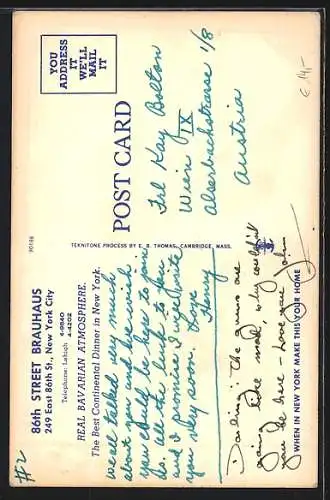 #2
86th STREET BRAUHAUS
249 East 86th St., New York City
Telephone: Lehigh 4-9840
4-4202
REAL BAVARIAN ATMOSPHERE.
The Best Continental Dinner in New York.
we all talked very much
about you and we wish
you could be here to join
us. all the luck to you
and I promise I will write
you very soon. Love
Henry
Darling: The drums are
going like mad, why couldn't
you be here - Love you John
WHEN IN NEW YORK MAKE THIS YOUR HOME
90146
TEKNITONE PROCESS BY E. B. THOMAS, CAMBRIDGE, MASS.
POST CARD
YOU
ADDRESS
IT
WE'LL
MAIL
IT
Frl Kay Bolton
Wien
IX
Alserbachstrasse 1/8
Austria
€ 14,-